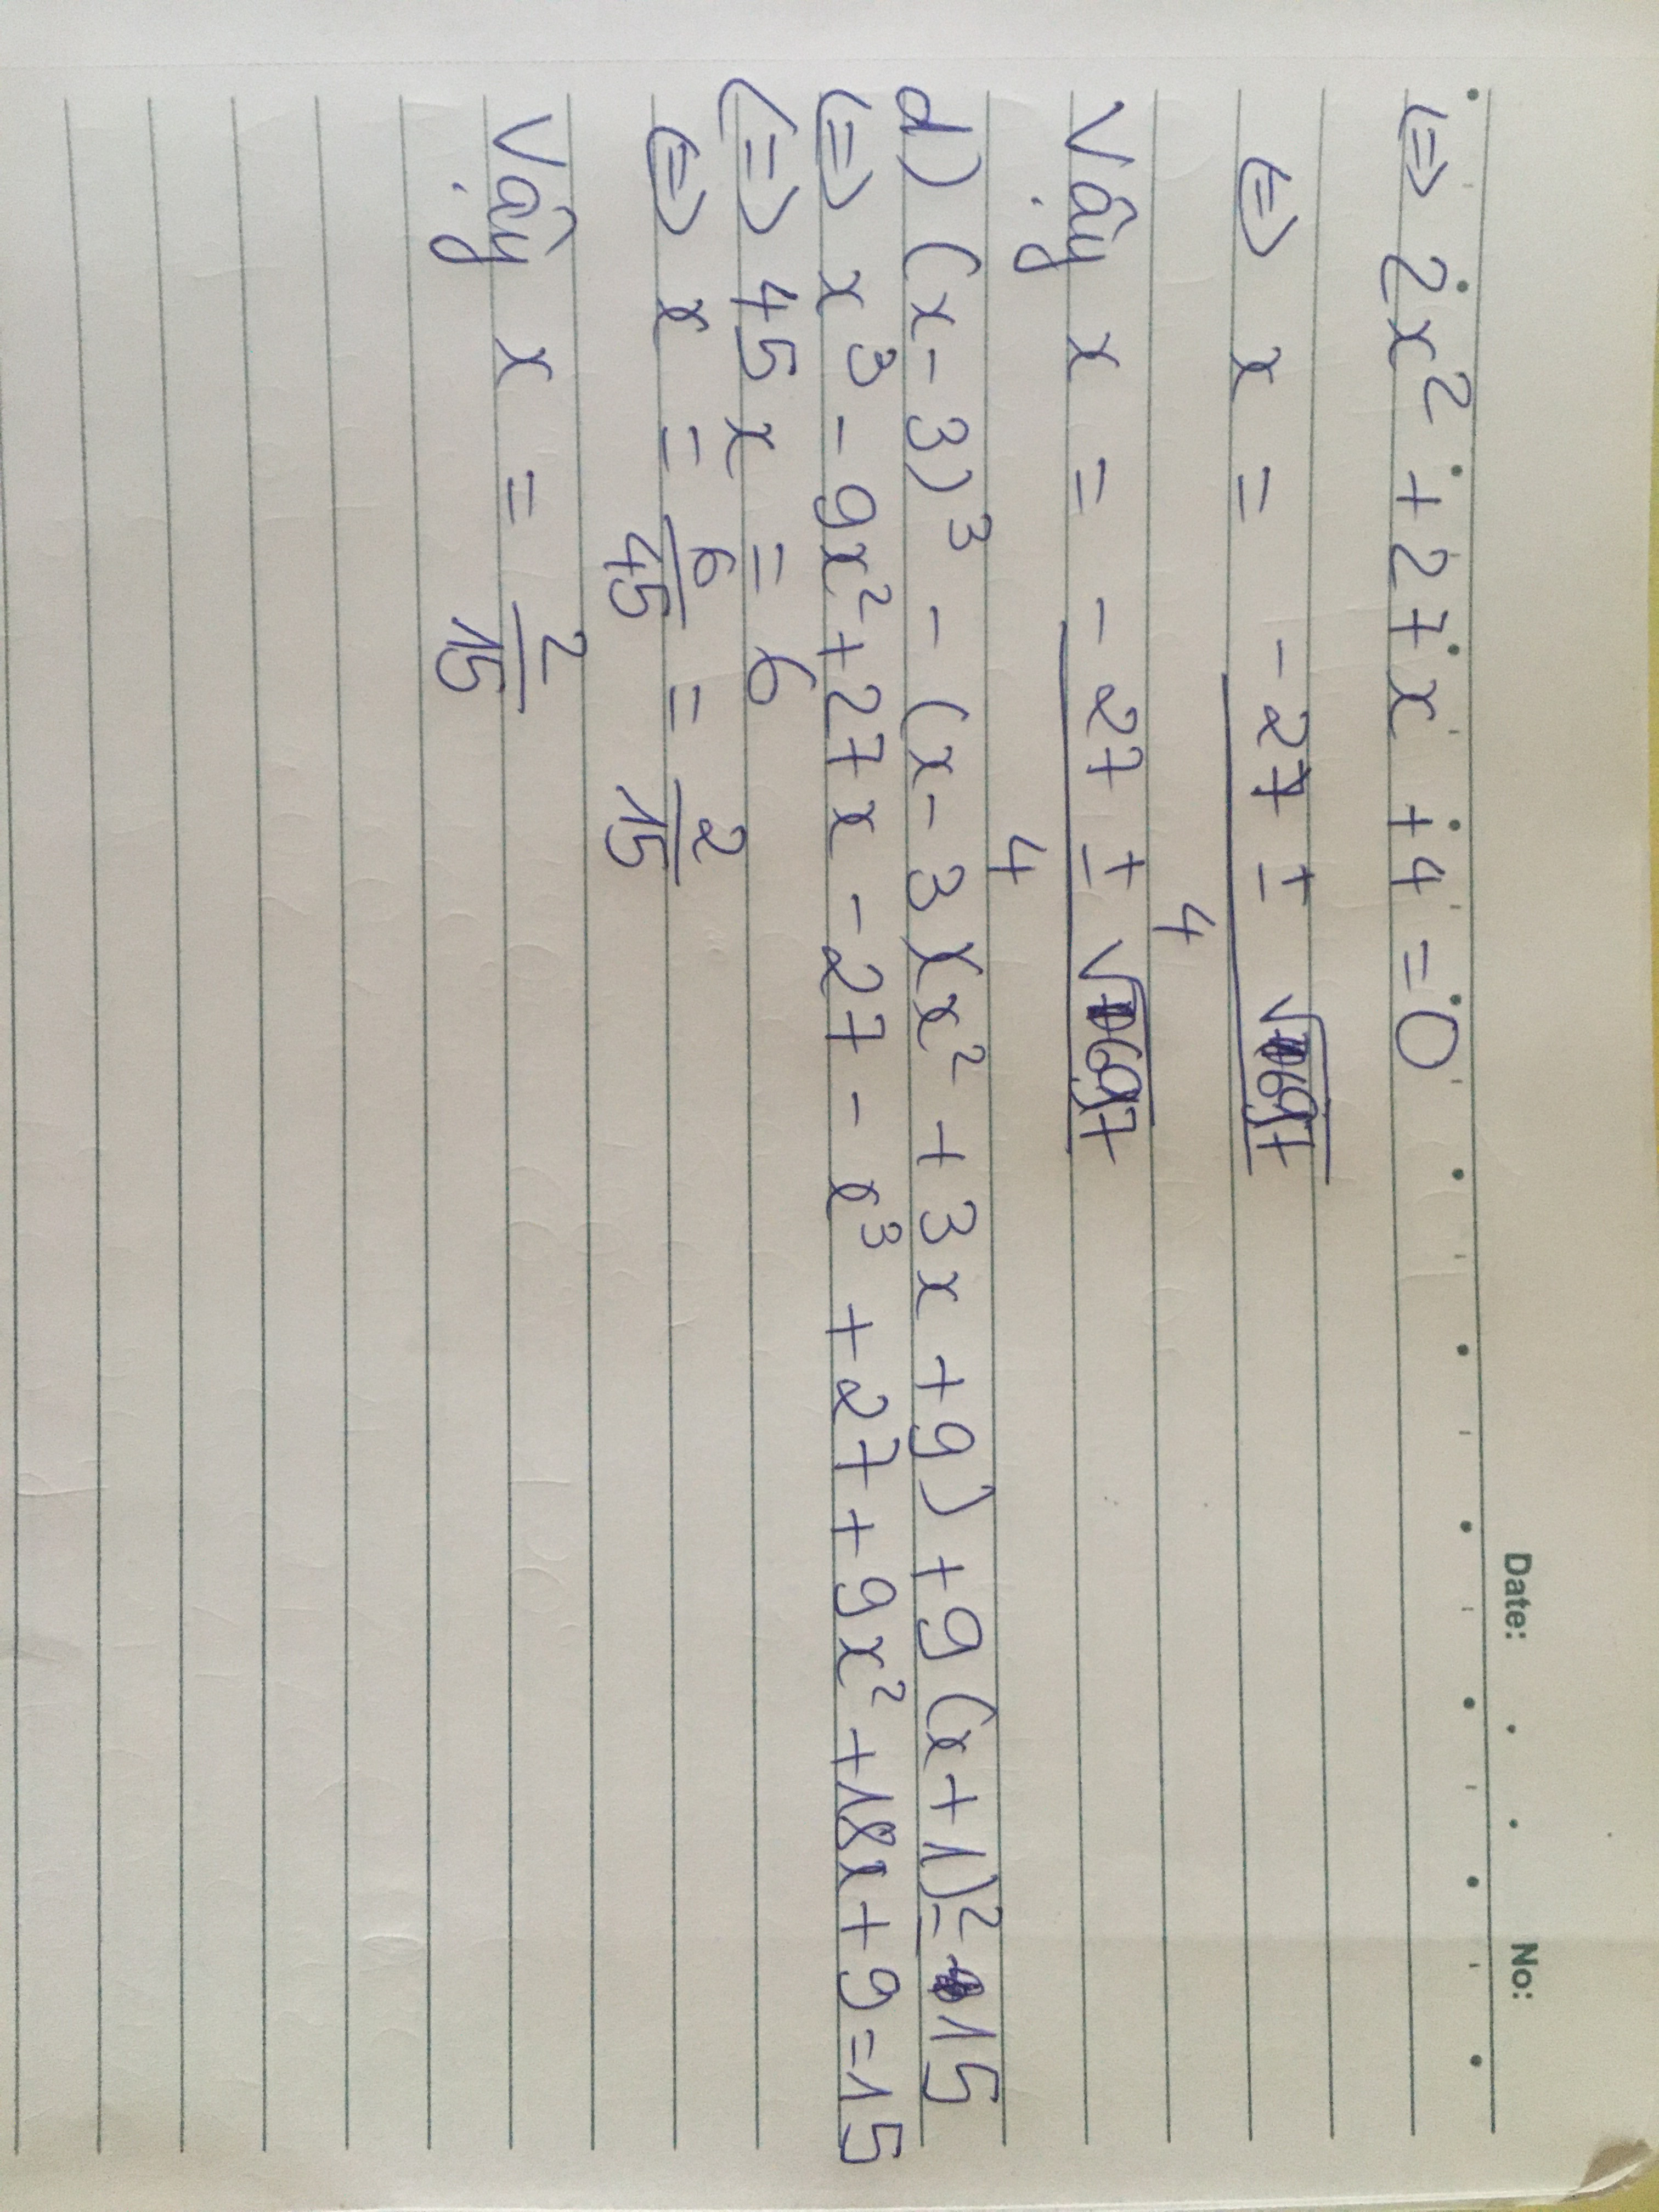 Date: No:
<=> 2x² + 27x + 4 = 0
<=> x = (-27 ± √697)/4
Vậy x = (-27 ± √697)/4
d) (x-3)³ - (x-3)(x² + 3x + 9) + 9(x+1)² = 15
<=> x³ - 9x² + 27x - 27 - x³ + 27 + 9x² + 18x + 9 = 15
<=> 45x = 6
<=> x = 6/45 = 2/15
Vậy x = 2/15